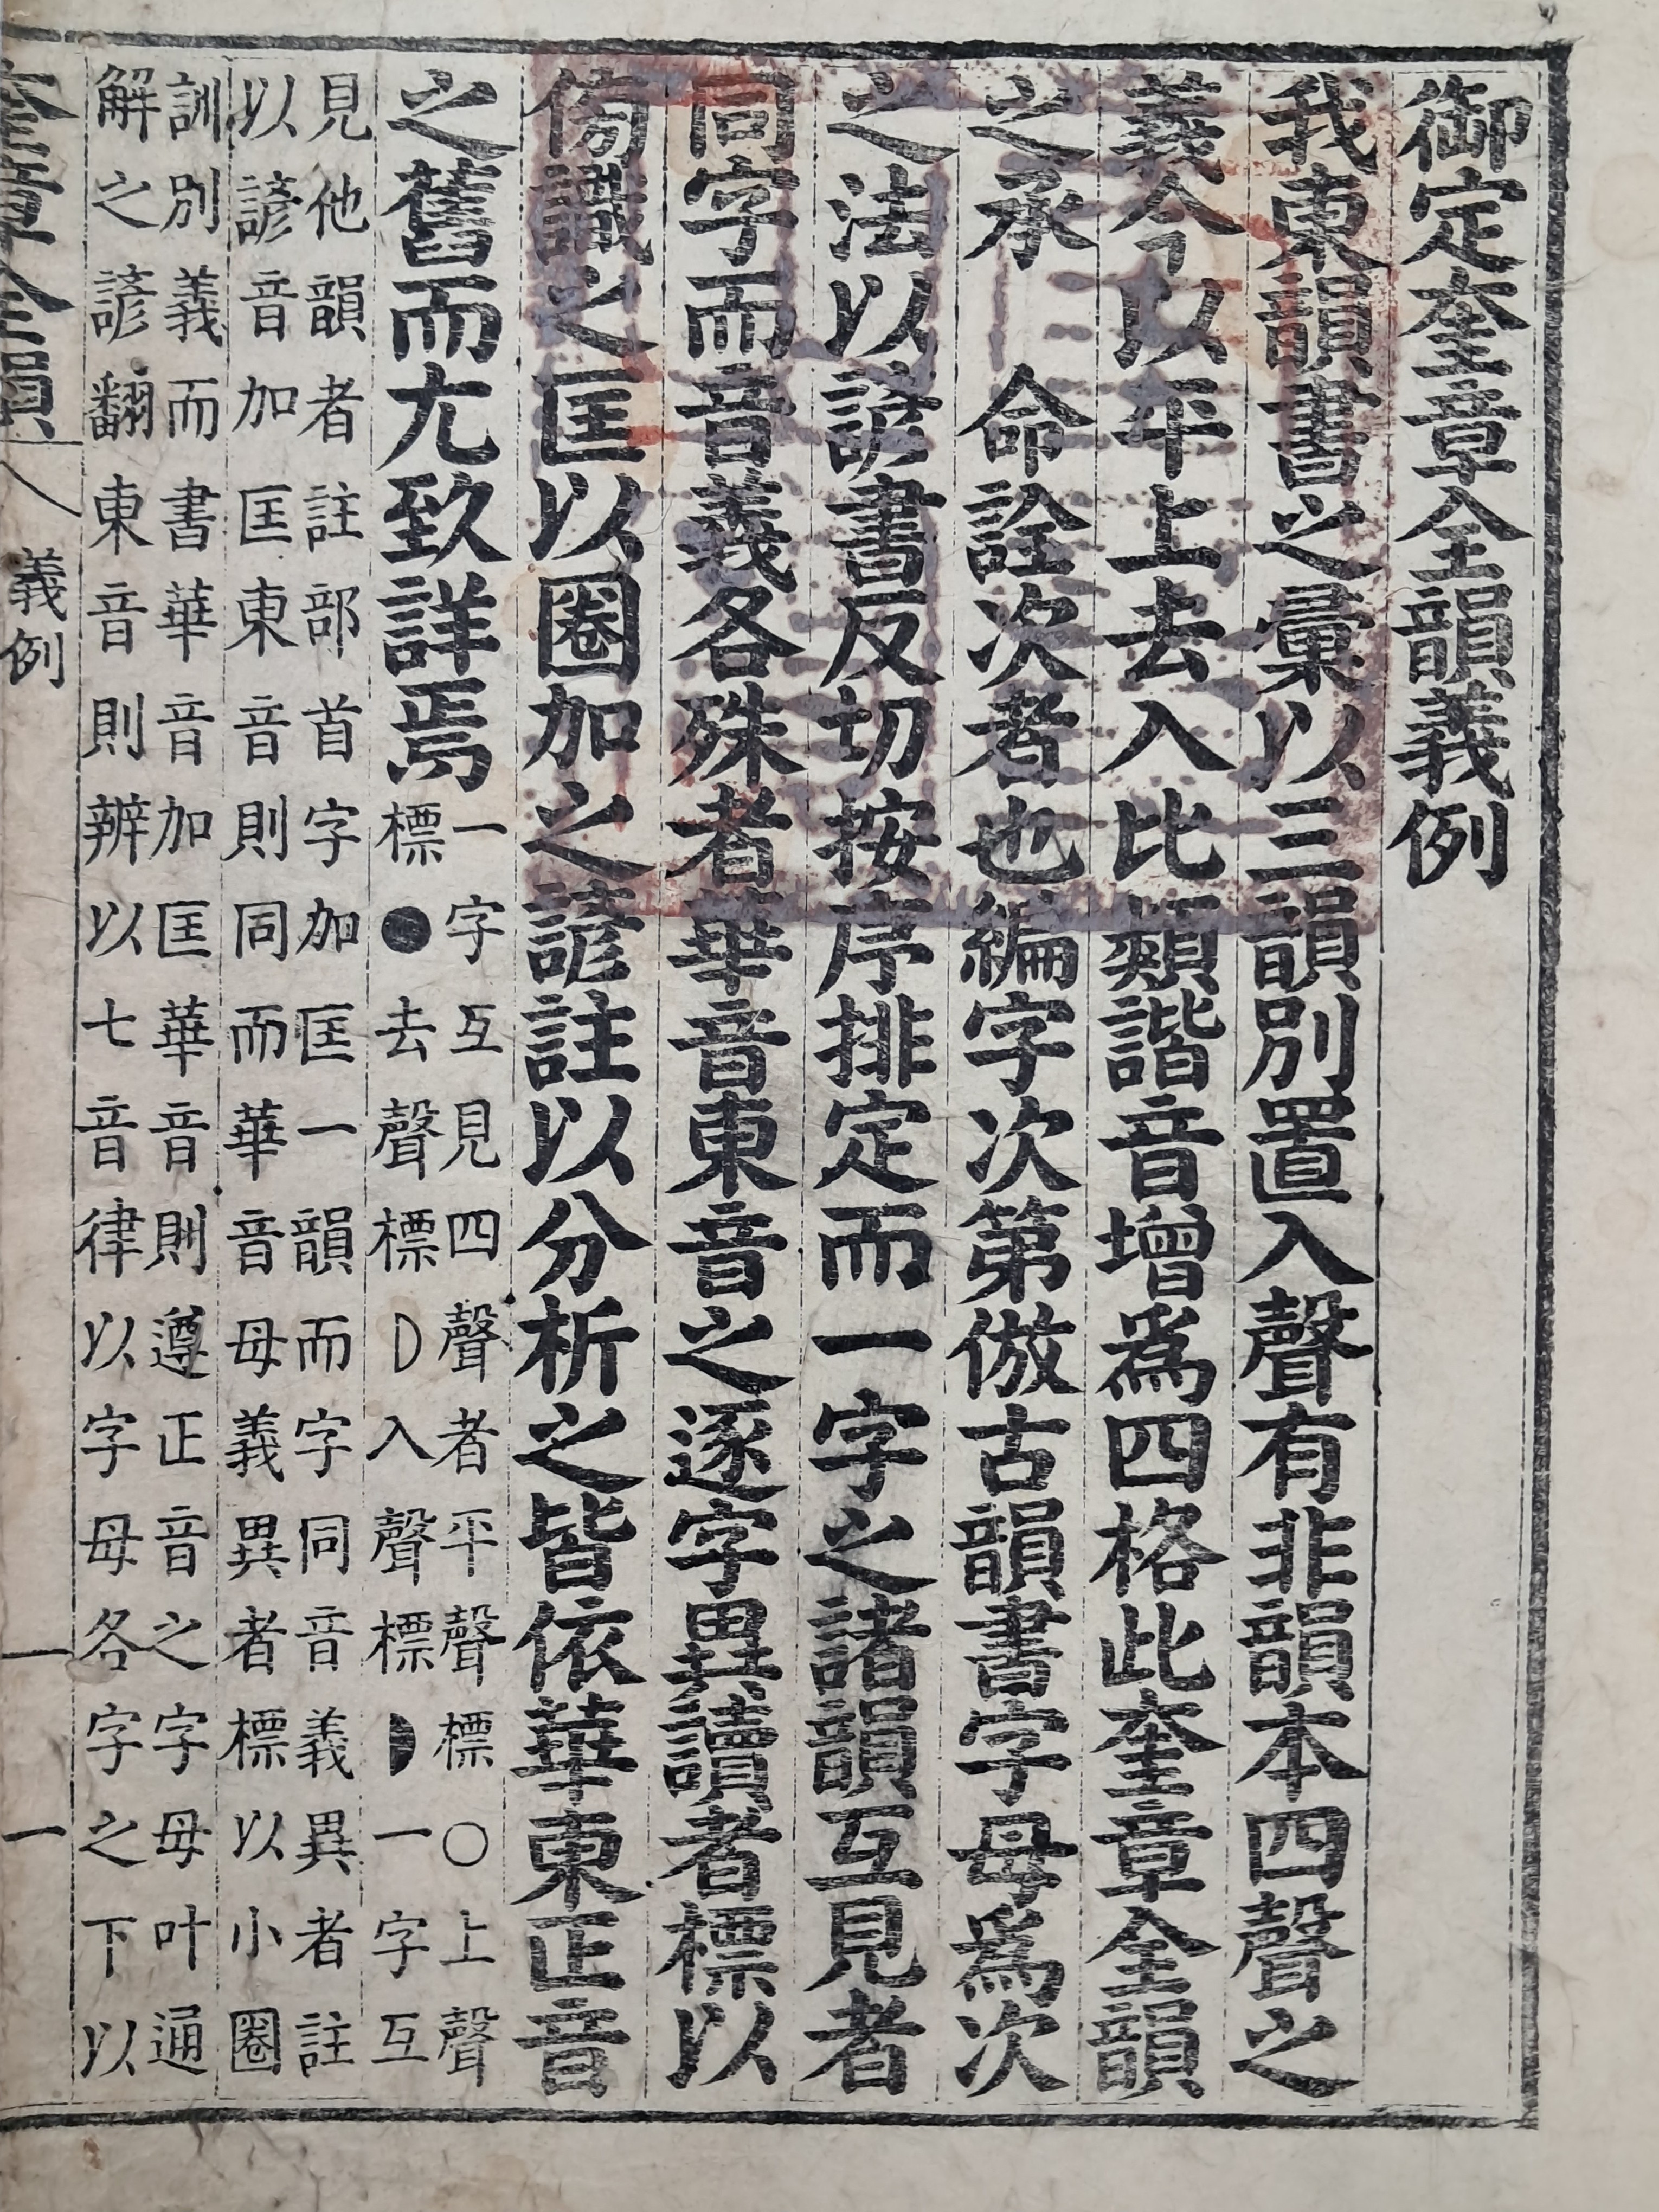 御定奎章全韻義例
我東韻書之彙以三韻別置入聲有非韻本四聲之
義今以平上去入比類諧音增爲四格此奎章全韻
之承　命詮次者也編字次第倣古韻書字母爲次
之法以諺書反切按序排定而一字之諸韻互見者
同字而音義各殊者華音東音之逐字異讀者標以
傍識之匡以圈加之諺註以分析之皆依華東正音
之舊而尤致詳焉
一字互見四聲者平聲標○上聲
標●去聲標☽入聲標◗一字互
見他韻者註部首字加匡一韻而字同音義異者註
以諺音加匡東音則同而華音母義異者標以小圈
訓別義而書華音加匡華音則遵正音之字母叶通
解之諺翻東音則辨以七音律以字母各字之下以
奎章全韻　義例　一